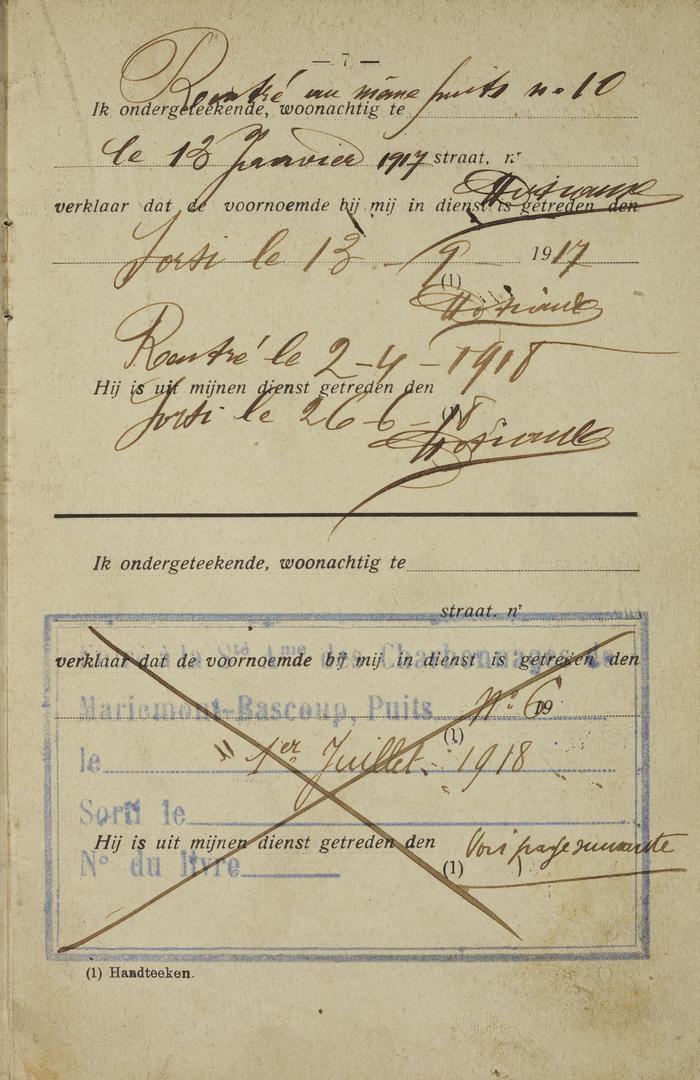 — 7 —
Rentré au même puits n° 10
Ik ondergeteekende, woonachtig te
le 13 Janvier 1917 straat, nr
verklaar dat de voornoemde bij mij in dienst is getreden den
Sorti le 13 - 9 - 1917
(1)
Rentré le 2-4-1918
Hij is uit mijnen dienst getreden den
Sorti le 26-6-18
(1)
Ik ondergeteekende, woonachtig te
straat. nr
à la Sté Ame des Charbonnages de
verklaar dat de voornoemde bij mij in dienst is getreden den
Mariemont-Bascoup, Puits N° 6
19
(1)
le 1er Juillet 1918
Sorti le
Hij is uit mijnen dienst getreden den
Voir page suivante
N° du livre
(1)
(1) Handteeken.